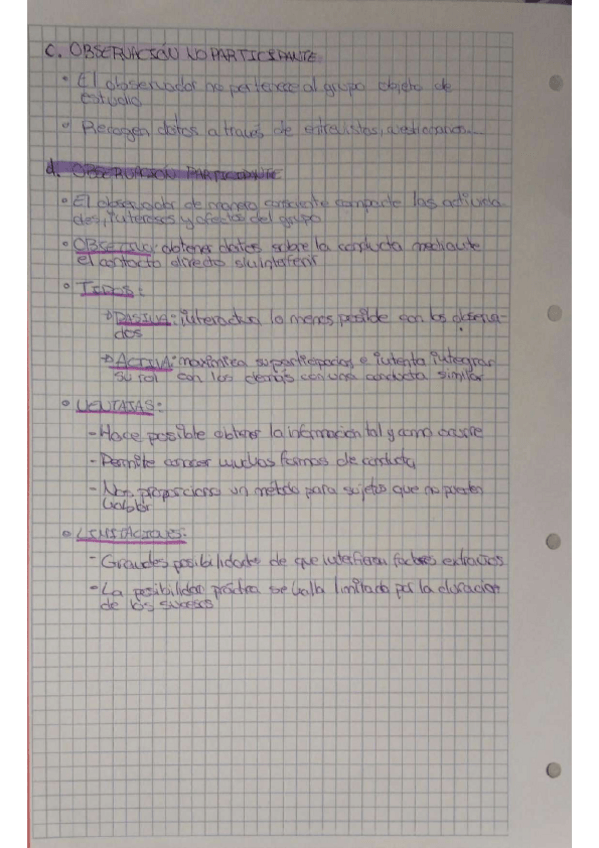 C. OBSERVACIÓN NO PARTICIPANTE
• El observador no pertenece al grupo objeto de
estudio
• Recogen datos a través de entrevistas, cuestionarios...
d. OBSERVACIÓN PARTICIPANTE
• El observador de manera consciente comparte las activida
des, intereses y afectos del grupo
• OBJETIVO: obtener datos sobre la conducta mediante
el contacto directo sin interferir
• TIPOS:
PASIVA: interactua lo menos posible con los observa-
dos
ACTIVA: maximiza su participacion e intenta integrar
su rol con los demás con una conducta similar
• VENTAJAS:
- Hace posible obtener la informacion tal y como ocurre
- Permite conocer muchas formas de conducta
- Nos proporciona un método para sujetos que no pueden
hablar
• LIMITACIONES:
- Grandes posibilidades de que interfieran factores extraños
- La posibilidad práctica se halla limitada por la duracion
de los sucesos